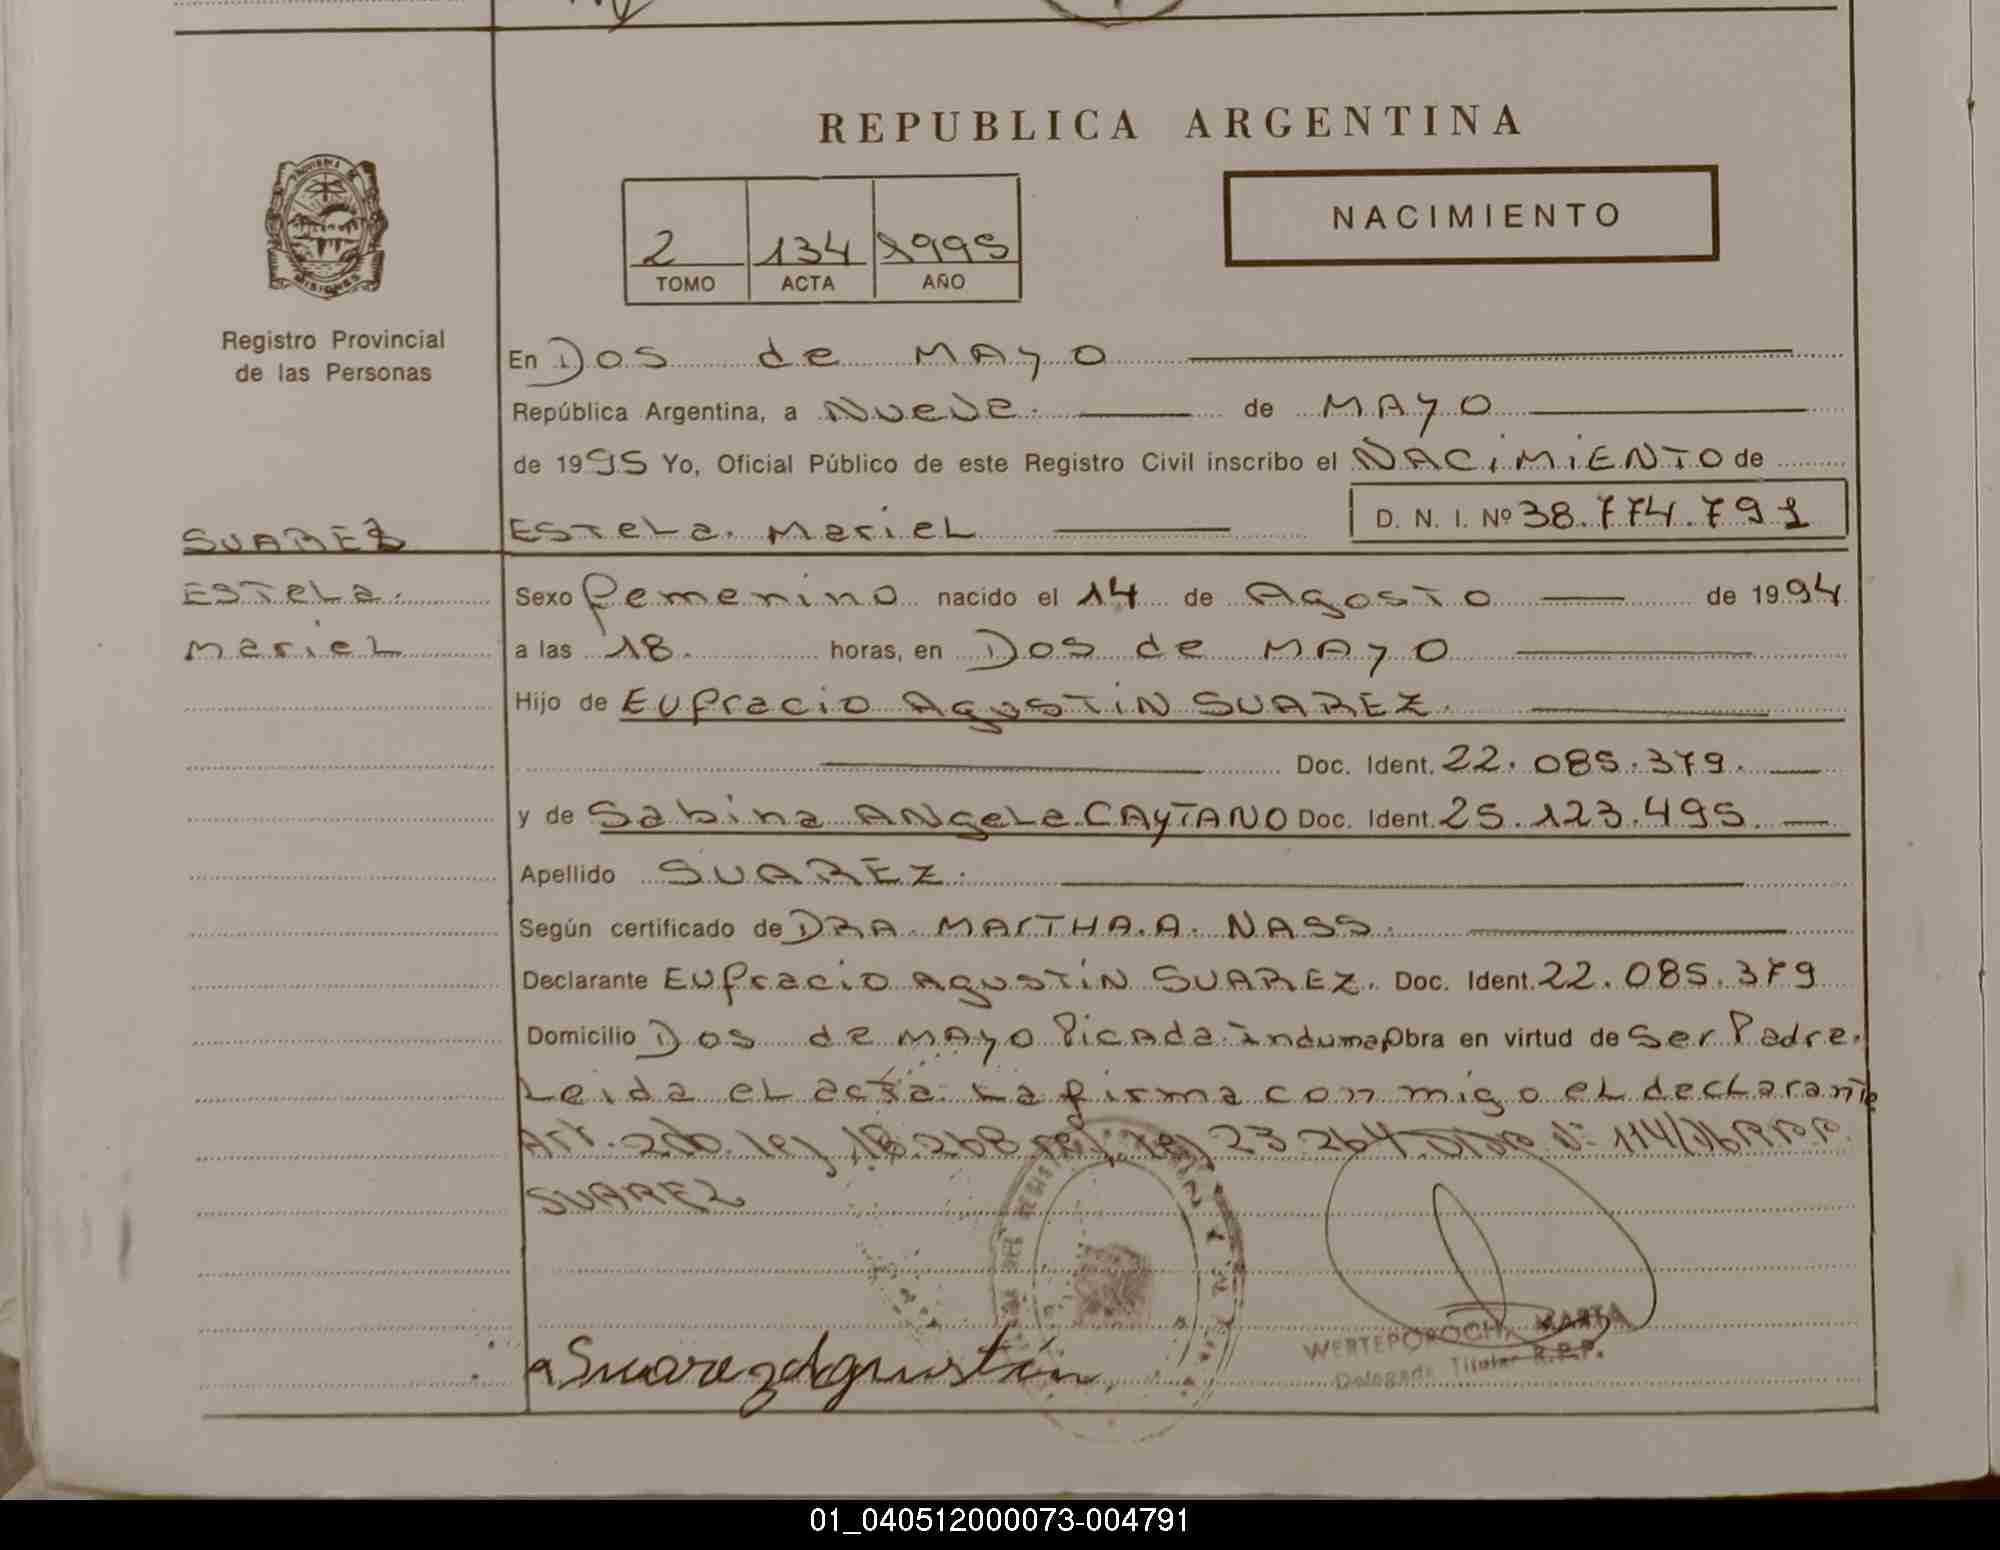 REPUBLICA ARGENTINA
PROVINCIA DE
MISIONES
NACIMIENTO
2 134 1995
TOMO ACTA AÑO
Registro Provincial
de las Personas
En Dos de MAYO
República Argentina, a NUEVE de MAYO
de 1995 Yo, Oficial Público de este Registro Civil inscribo el NACIMIENTO de
SUAREZ
ESTELA Mariel D. N. I. Nº 38.774.791
ESTELA
Mariel
Sexo femenino nacido el 14 de Agosto de 1994
a las 18. horas, en Dos de MAYO
Hijo de Eufracio Agustin SUAREZ.
Doc. Ident. 22.085.379.
y de Sabina Angela CAYTANO Doc. Ident. 25.123.495.
Apellido SUAREZ.
Según certificado de DRA. MARTHA.A. NASS.
Declarante Eufracio Agustin SUAREZ. Doc. Ident. 22.085.379
Domicilio Dos de MAYO Picada Indumar Obra en virtud de Ser Padre.
Leida el acta La firma con migo el declarante
Art. 2do. ley 18.248 ley 23.264 Nº 114/
SUAREZ
Suarez Agustin
WERTEPOROCH, MARTA
Delegada Titular R.P.P.
01_040512000073-004791